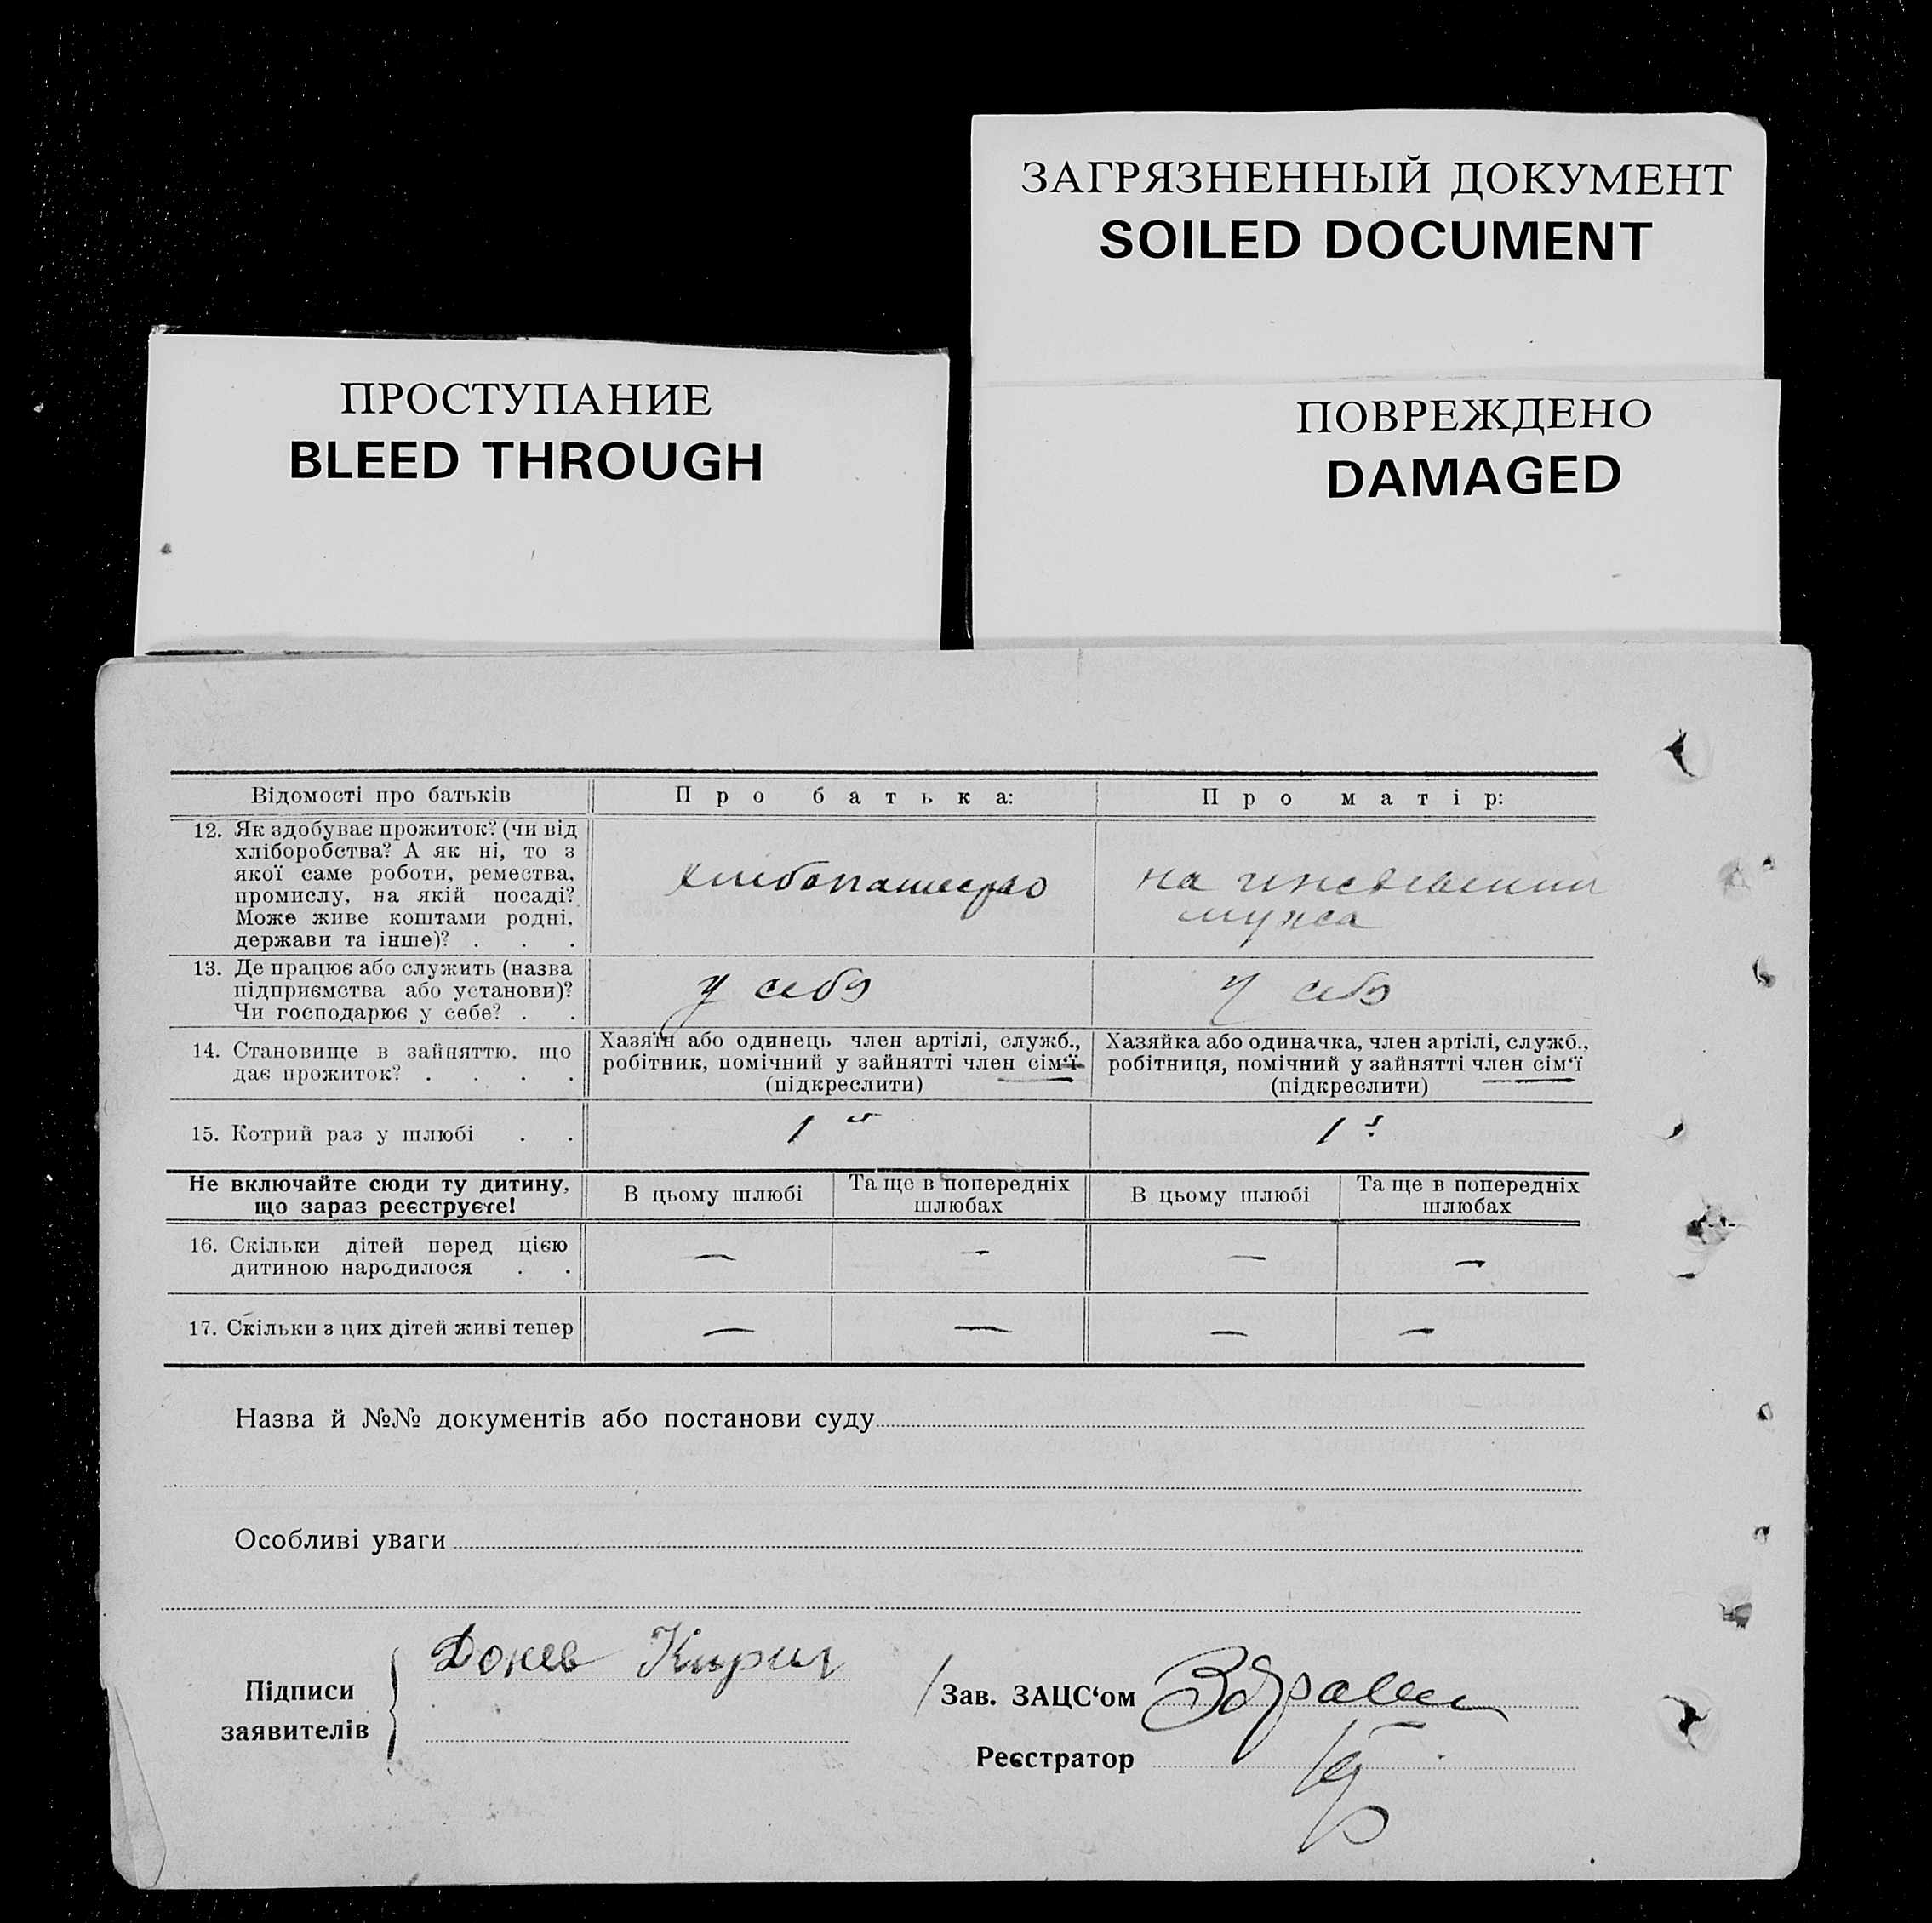 ЗАГРЯЗНЕННЫЙ ДОКУМЕНТ
SOILED DOCUMENT
ПРОСТУПАНИЕ
BLEED THROUGH
ПОВРЕЖДЕНО
DAMAGED
Відомості про батьків
Про батька:
Про матір:
12. Як здобуває прожиток? (чи від
хліборобства? А як ні, то з
якої саме роботи, ремества,
промислу, на якій посаді?
Може живе коштами родні,
держави та інше)? . . .
хлебопашество
на иждевении
мужа
13. Де працює або служить (назва
підприємства або установи)?
Чи господарює у себе? . .
у себя
у себя
14. Становище в зайняттю, що
дає прожиток? . . . .
Хазяїн або одинець член артілі, служб.,
робітник, помічний у зайнятті член сім‘ї
(підкреслити)
Хазяйка або одиначка, член артілі, служб.,
робітниця, помічний у зайнятті член сім‘ї
(підкреслити)
15. Котрий раз у шлюбі . .
1
1
Не включайте сюди ту дитину,
що зараз реєструєте!
В цьому шлюбі
Та ще в попередніх
шлюбах
В цьому шлюбі
Та ще в попередніх
шлюбах
16. Скільки дітей перед цією
дитиною народилося . .
— — — —
17. Скільки з цих дітей живі тепер
— — — —
Назва й №№ документів або постанови суду
Особливі уваги
Підписи
заявителів
Докев Кирил
Зав. ЗАЦС‘ом
Реєстратор